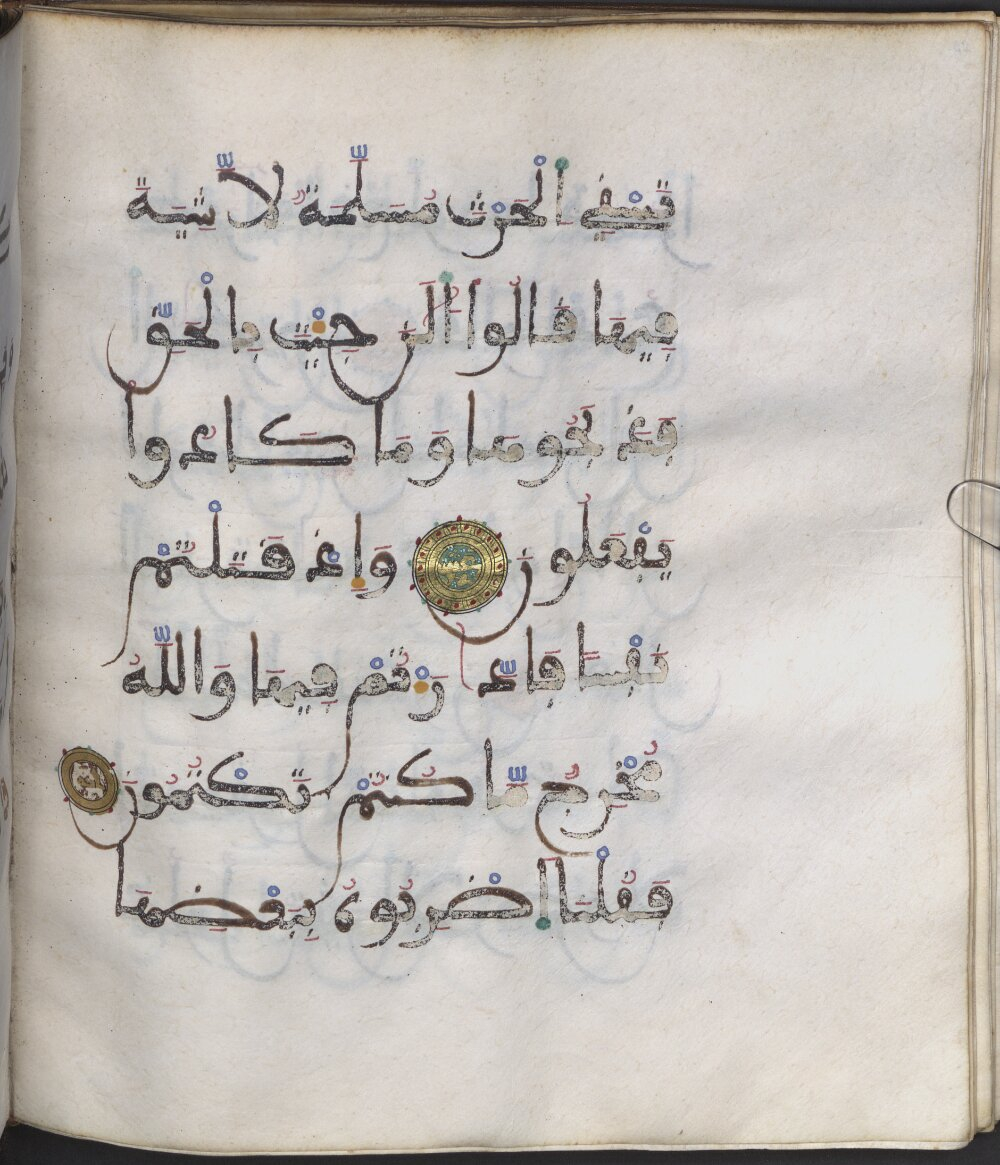 تَسْقِي اَلْحَرْثَ مُسَلَّمَةٌ لَّا شِيَةَ
فِيهَا قَالُوا اُلَٰنَ جِئْتَ بِالْحَقِّ
فَذَبَحُوهَا وَمَا كَادُوا
يَفْعَلُونَ وَإِذْ قَتَلْتُمْ
نَفْسًا فَادَّٰرَأْتُمْ فِيهَا وَاللَّهُ
مُخْرِجٌ مَّا كُنْتُمْ تَكْتُمُونَ
فَقُلْنَا اِضْرِبُوهُ بِبَعْضِهَا